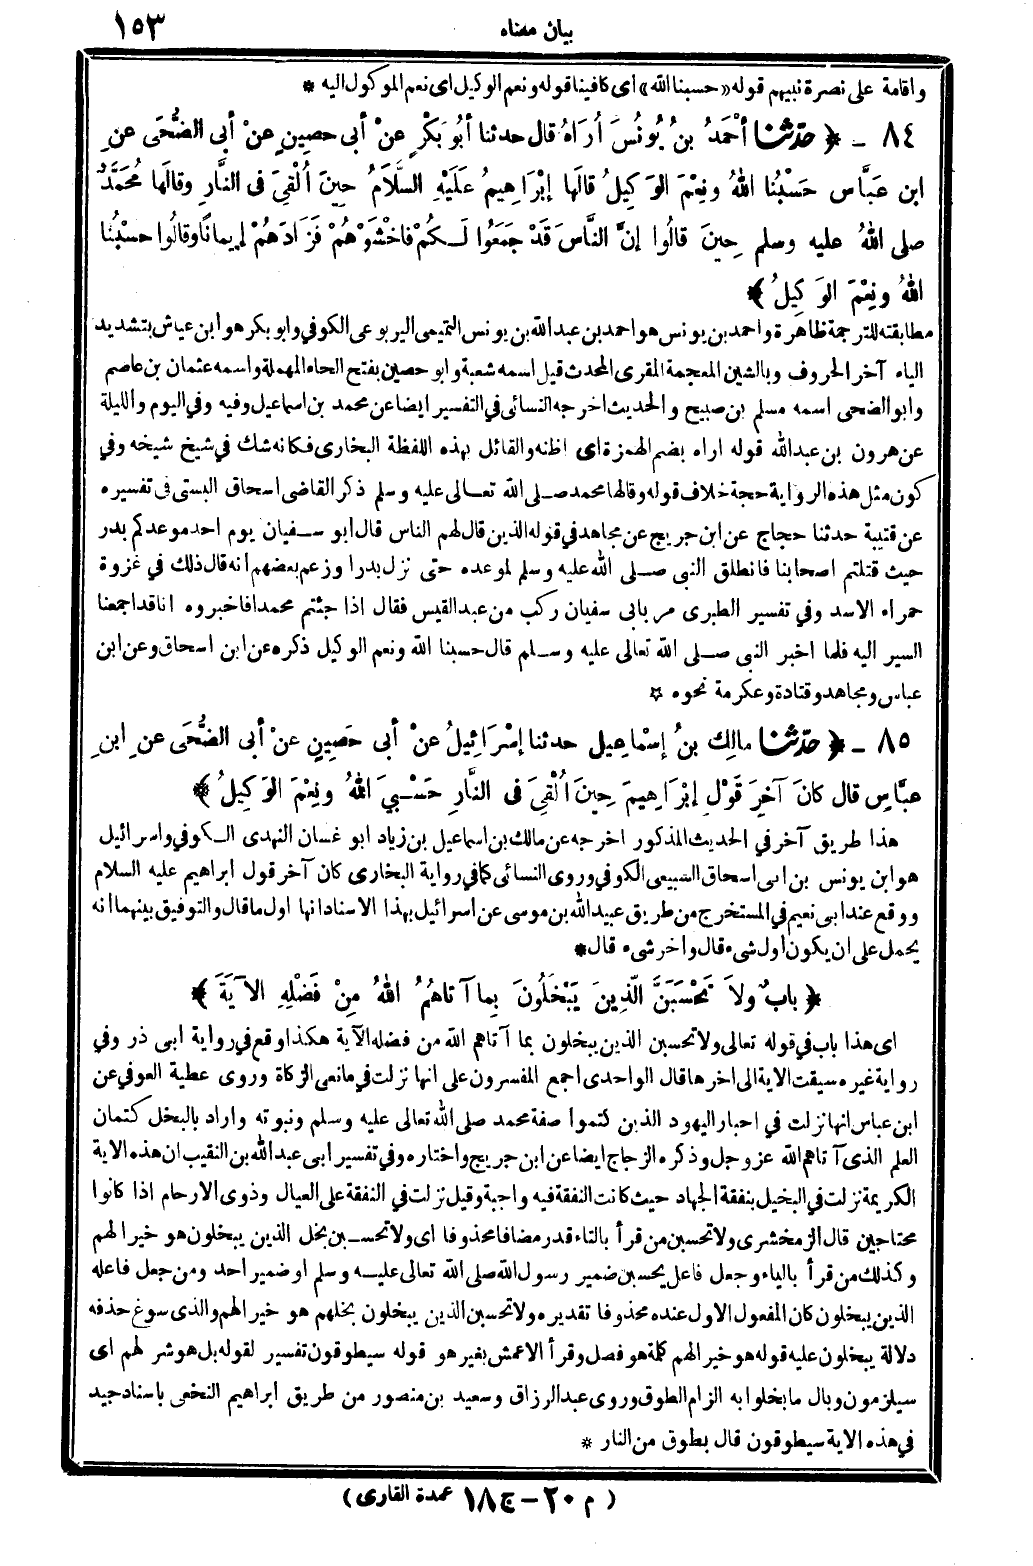 بيان معناه ١٥٣
واقامة على نصرة نبيهم قوله «حسبنا الله» اى كافينا قوله ونعم الوكيل اى نعم الموكول اليه *
٨٤ - ﴿ حَدَّثَنَا أحْمَدُ بنُ يُونُسَ أُرَاهُ قال حدثنا أبُو بَكْرٍ عنْ أبى حصِينٍ عنْ أبى الضُّحَى عنِ
ابن عَبَّاس حَسْبُنا اللهُ ونِعْمَ الوَكِيلُ قالَها إبْرَاهِيمُ عَلَيْهِ السَّلاَمُ حِينَ أُلْقِىَ فى النَّارِ وقالَها مُحَمَّدٌ
صلى اللهُ عليه وسلم حِينَ قالُوا إنَّ النَّاسَ قَدْ جَمَعُوا لَكُمْ فاخْشَوْهُمْ فَزَادَهُمْ إيمانًا وقالُوا حسْبُنا
اللهُ ونِعْمَ الوَكِيلُ ﴾
مطابقته للترجمة ظاهرة واحمد بن يونس هو احمد بن عبد الله بن يونس التميمى اليربوعى الكوفي وابو بكر هو ابن عياش بتشديد
الياء آخر الحروف وبالشين المعجمة المقرى المحدث قيل اسمه شعبة وابو حصين بفتح الحاء المهملة واسمه عثمان بن عاصم
وابو الضحى اسمه مسلم بن صبيح والحديث اخرجه النسائى في التفسير ايضا عن محمد بن اسماعيل وفيه وفي اليوم والليلة
عن هرون بن عبد الله قوله اراه بضم الهمزة اى اظنه والقائل بهذه اللفظة البخارى فكانه شك في شيخ شيخه وفي
كون مثل هذه الرواية حجة خلاف قوله وقالها محمد صلى الله تعالى عليه وسلم ذكر القاضى اسحاق البستى فى تفسيره
عن قتيبة حدثنا حجاج عن ابن جريج عن مجاهد في قوله الذين قال لهم الناس قال ابو سفيان يوم احد موعدكم بدر
حيث قتلتم اصحابنا فانطلق النبى صلى الله عليه وسلم لموعده حتى نزل بدرا وزعم بعضهم انه قال ذلك في غزوة
حمراء الاسد وفي تفسير الطبرى مر بابى سفيان ركب من عبد القيس فقال اذا جئتم محمدا فاخبروه انا قد اجمعنا
السير اليه فلما اخبر النبى صلى الله تعالى عليه وسلم قال حسبنا الله ونعم الوكيل ذكره عن ابن اسحاق وعن ابن
عباس ومجاهد وقتادة وعكرمة نحوه *
٨٥ - ﴿ حَدَّثَنَا مالِك بنُ إسْماعِيل حدثنا إسْرَائِيلُ عنْ أبى حَصِينٍ عنْ أبى الضُّحَى عنِ ابنِ
عبَّاسٍ قال كانَ آخِرَ قَوْلِ إبْرَاهِيمَ حِينَ أُلْقِىَ فى النَّارِ حَسْبِيَ اللهُ ونِعْمَ الوَكِيلُ ﴾
هذا طريق آخر في الحديث المذكور اخرجه عن مالك بن اسماعيل بن زياد ابو غسان النهدى الكوفي واسرائيل
هو ابن يونس بن ابى اسحاق السبيعى الكوفي وروى النسائى كما في رواية البخارى كان آخر قول ابراهيم عليه السلام
ووقع عند ابى نعيم في المستخرج من طريق عبيد الله بن موسى عن اسرائيل بهذا الاسناد انها اول ما قال والتوفيق بينهما انه
يحمل على ان يكون اول شىء قال وآخر شىء قال *
﴿ بابٌ ولاَ تَحْسَبَنَّ الَّذِينَ يَبْخَلُونَ بِما آتاهُمُ اللهُ مِنْ فَضْلِهِ الآيَةَ ﴾
اى هذا باب في قوله تعالى ولا تحسبن الذين يبخلون بما آتاهم الله من فضله الآية هكذا وقع في رواية ابى ذر وفي
رواية غيره سيقت الاية الى اخرها قال الواحدى اجمع المفسرون على انها نزلت في مانعى الزكاة وروى عطية العوفي عن
ابن عباس انها نزلت في احبار اليهود الذين كتموا صفة محمد صلى الله تعالى عليه وسلم ونبوته واراد بالبخل كتمان
العلم الذى آتاهم الله عز وجل وذكره الزجاج ايضا عن ابن جريج واختاره وفي تفسير ابى عبد الله بن النقيب ان هذه الاية
الكريمة نزلت في البخيل بنفقة الجهاد حيث كانت النفقة فيه واجبة وقيل نزلت في النفقة على العيال وذوى الارحام اذا كانوا
محتاجين قال الزمخشرى ولا تحسبن من قرأ بالتاء قدر مضافا محذوفا اى ولا تحسبن بخل الذين يبخلون هو خيرا لهم
وكذلك من قرأ بالياء وجعل فاعل يحسبن ضمير رسول الله صلى الله تعالى عليه وسلم او ضمير احد ومن جعل فاعله
الذين يبخلون كان المفعول الاول عنده محذوفا تقديره ولا تحسبن الذين يبخلون بخلهم هو خيرا لهم والذى سوغ حذفه
دلالة يبخلون عليه قوله هو خيرا لهم كلمة هو فصل وقرأ الاعمش بغير هو قوله سيطوقون تفسير لقوله بل هو شر لهم اى
سيلزمون وبال ما بخلوا به الزام الطوق وروى عبد الرزاق وسعيد بن منصور من طريق ابراهيم النخعى باسناد جيد
في هذه الاية سيطوقون قال بطوق من النار *
(م ٢٠ - ج ١٨ عمدة القارى)